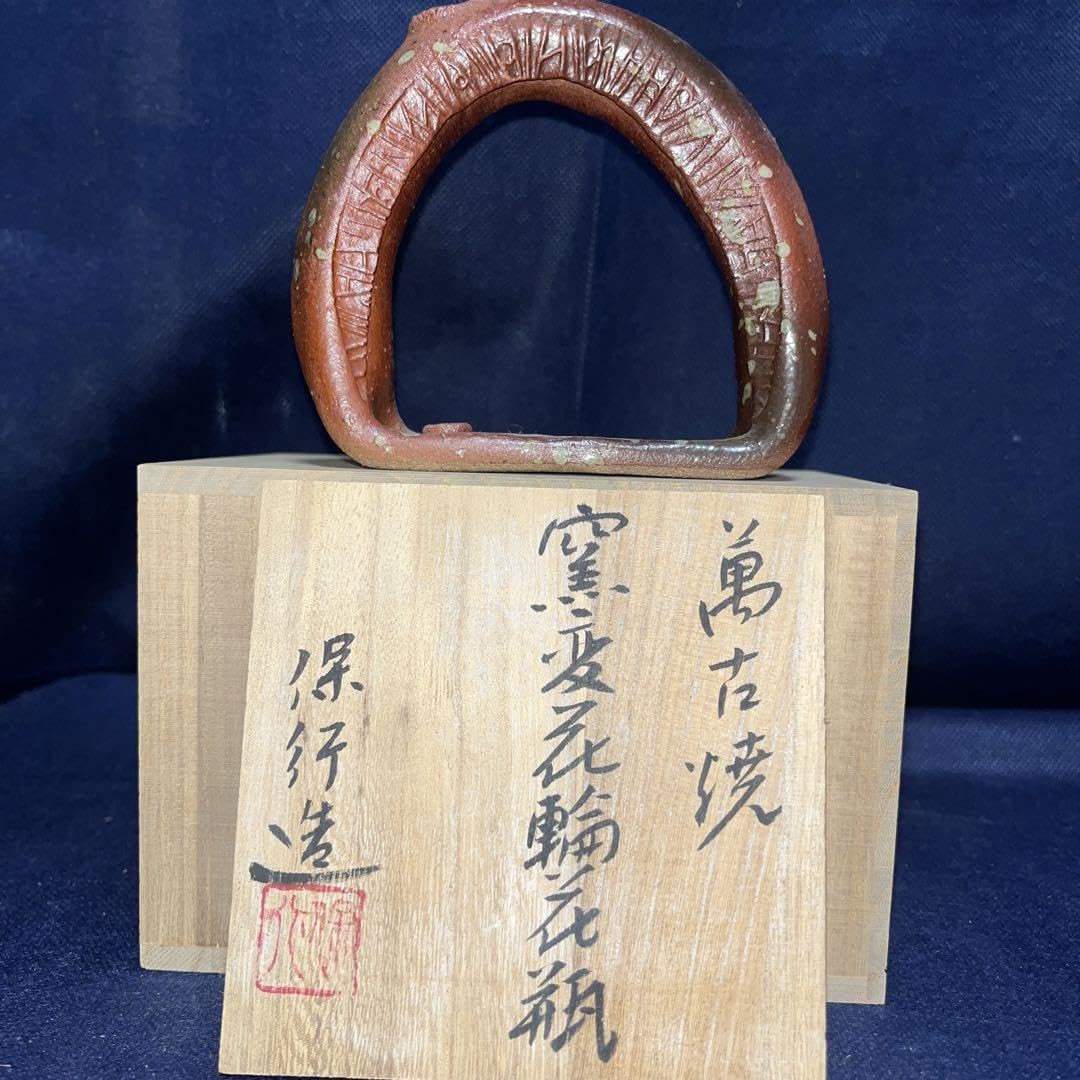 萬古焼
窯変花輪花瓶
保行造
保行